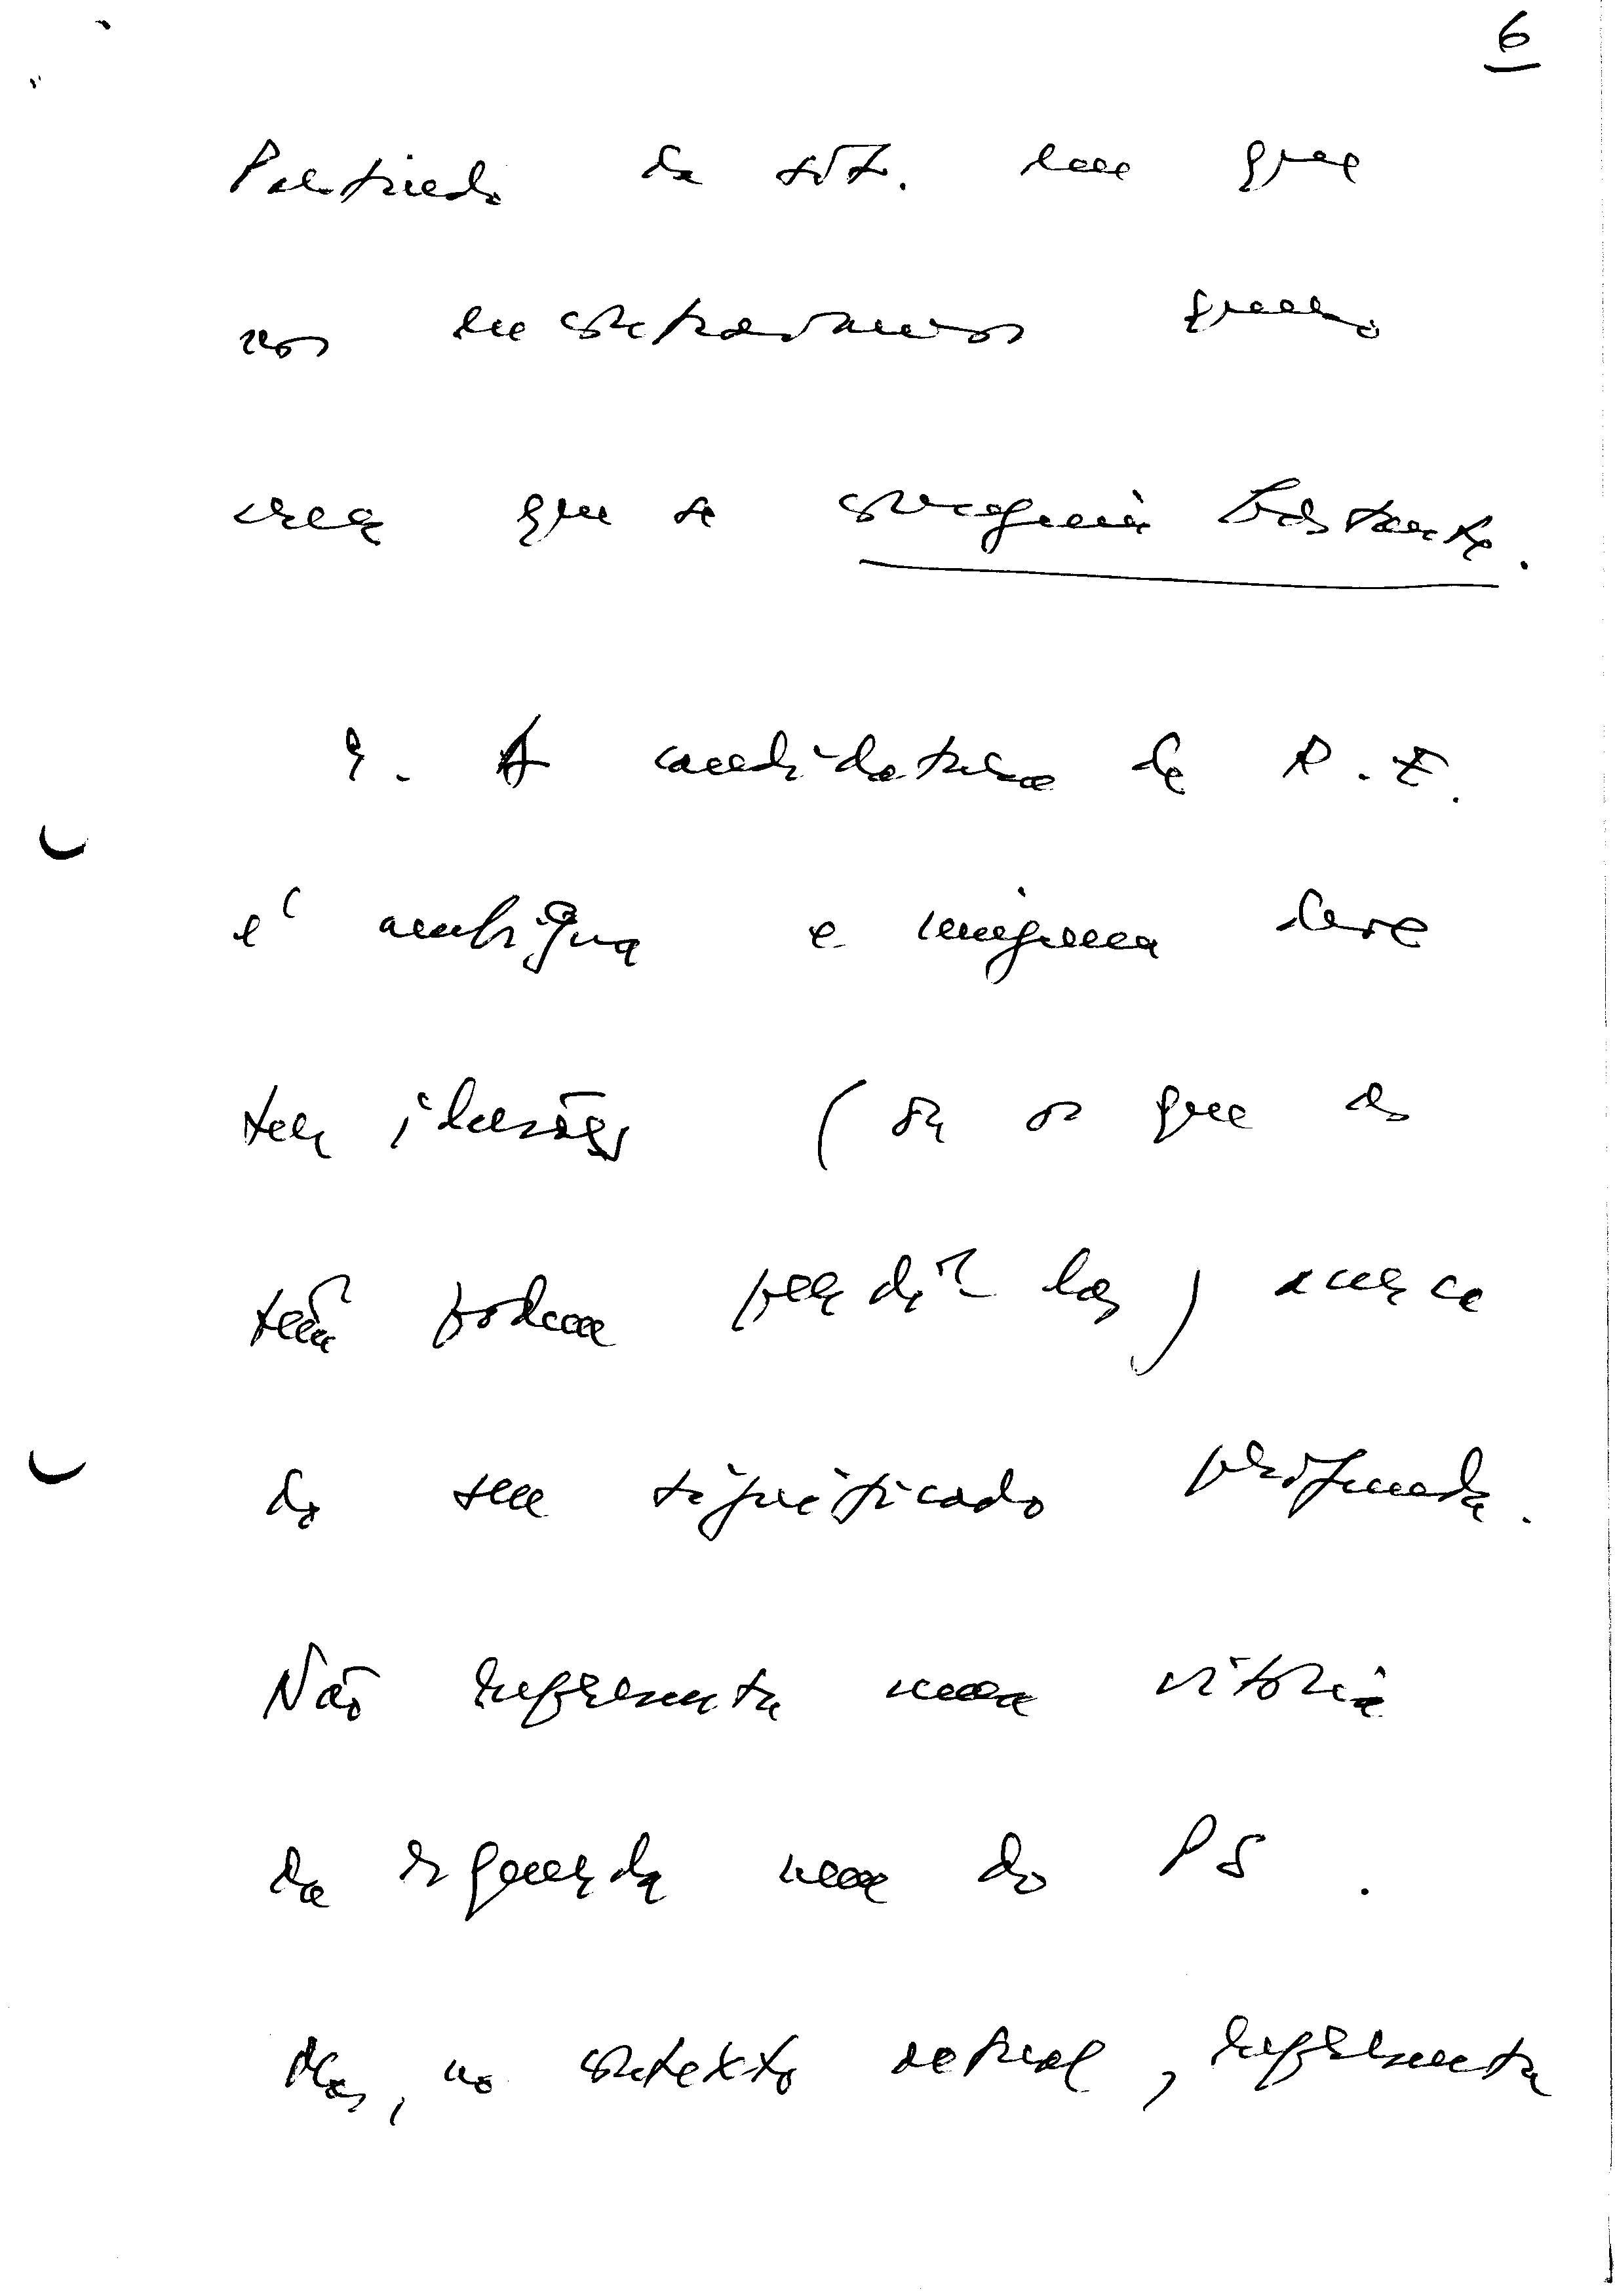 6
Partindo da sit. em que
nos encontravamos quero
crer que se conseguiu bastante.
9. A candidatura de R. E.
é ambigua e ninguem deve
ter ilusões (ou os que as
têm podem perdê-las) acerca
do seu significado profundo.
Não representa uma vitória
da esquerda nem do PS.
Mas, no contexto actual, representa